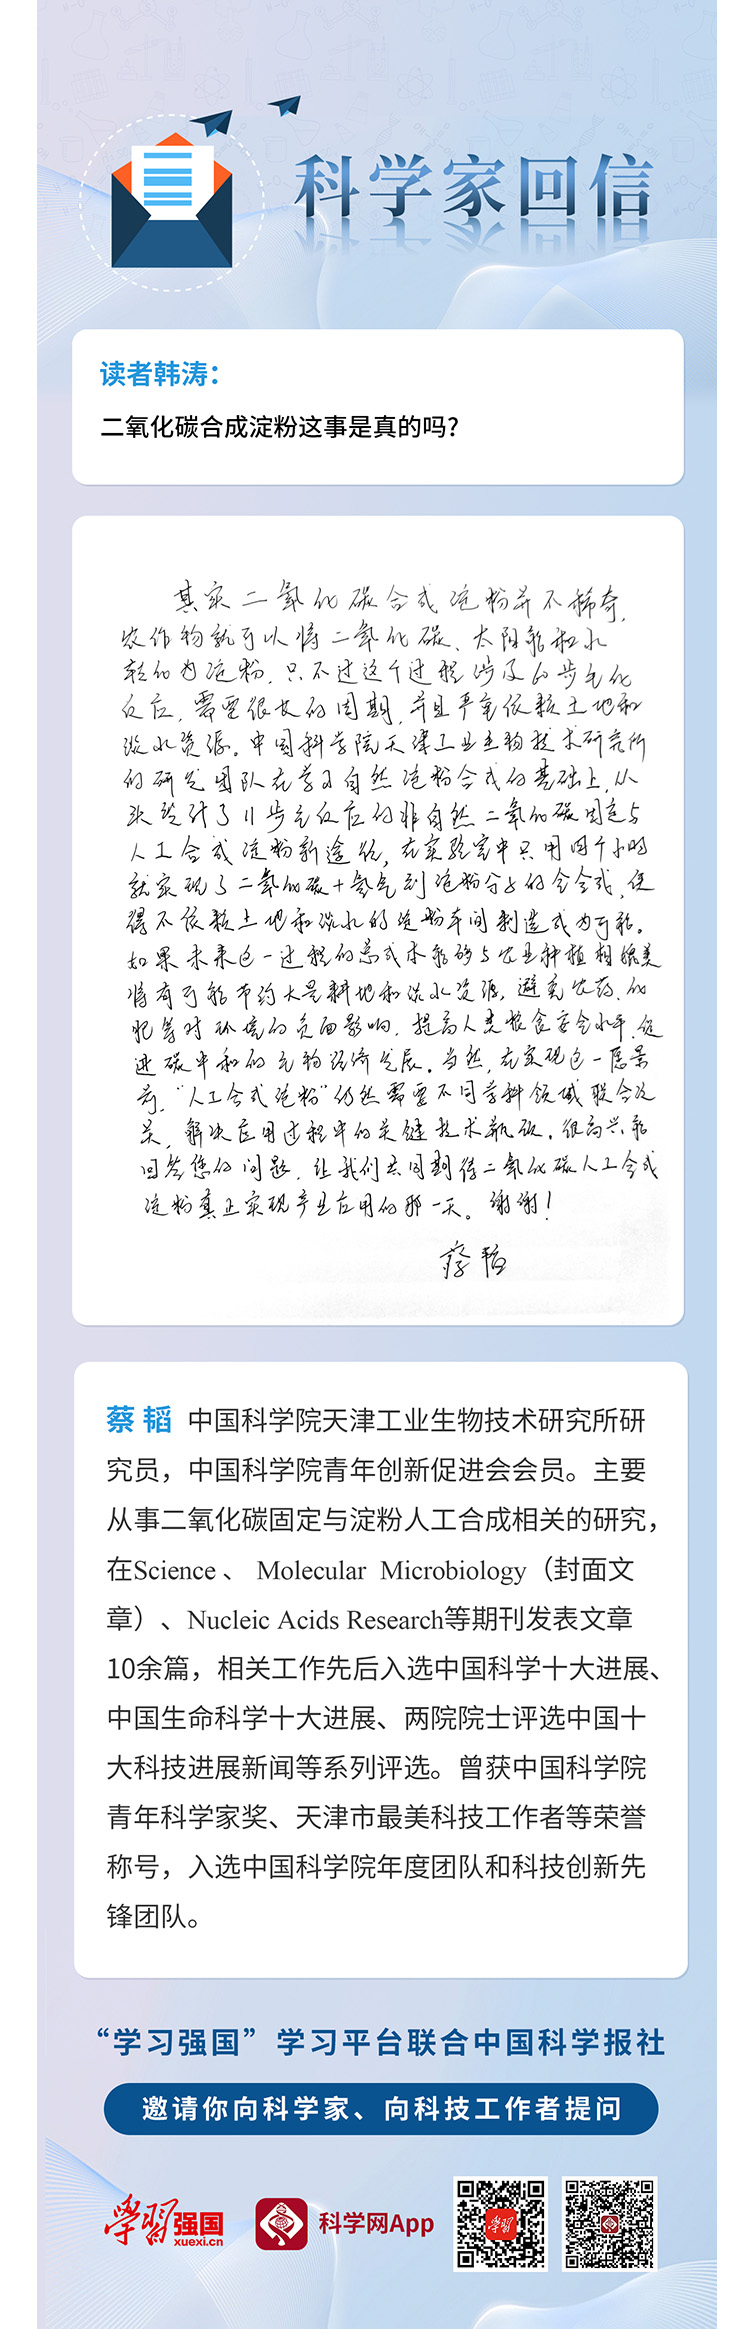 科学家回信
读者韩涛：
二氧化碳合成淀粉这事是真的吗？
其实二氧化碳合成淀粉并不稀奇，
农作物就可以将二氧化碳、太阳能和水
转化为淀粉，只不过这个过程涉及60步生化
反应，需要很长的周期，并且严重依赖土地和
淡水资源。中国科学院天津工业生物技术研究所
的研发团队在学习自然淀粉合成的基础上，从
头设计了11步主反应的非自然二氧化碳固定与
人工合成淀粉新途径，在实验室中只用四个小时
就实现了二氧化碳+氢气到淀粉分子的全合成，使
得不依赖土地和淡水的淀粉车间制造成为可能。
如果未来这一过程的总成本能够与农业种植相媲美
将有可能节约大量耕地和淡水资源，避免农药、化
肥等对环境的负面影响，提高人类粮食安全水平，促
进碳中和的生物经济发展。当然，在实现这一愿景
前，“人工合成淀粉”仍然需要不同学科领域联合攻
关，解决应用过程中的关键技术瓶颈。很高兴能
回答您的问题，让我们共同期待二氧化碳人工合成
淀粉真正实现产业应用的那一天。谢谢！
蔡韬
蔡 韬 中国科学院天津工业生物技术研究所研
究员，中国科学院青年创新促进会会员。主要
从事二氧化碳固定与淀粉人工合成相关的研究，
在Science、 Molecular Microbiology（封面文
章）、Nucleic Acids Research等期刊发表文章
10余篇，相关工作先后入选中国科学十大进展、
中国生命科学十大进展、两院院士评选中国十
大科技进展新闻等系列评选。曾获中国科学院
青年科学家奖、天津市最美科技工作者等荣誉
称号，入选中国科学院年度团队和科技创新先
锋团队。
“学习强国”学习平台联合中国科学报社
邀请你向科学家、向科技工作者提问
学习强国
xuexi.cn
科学网App
学习